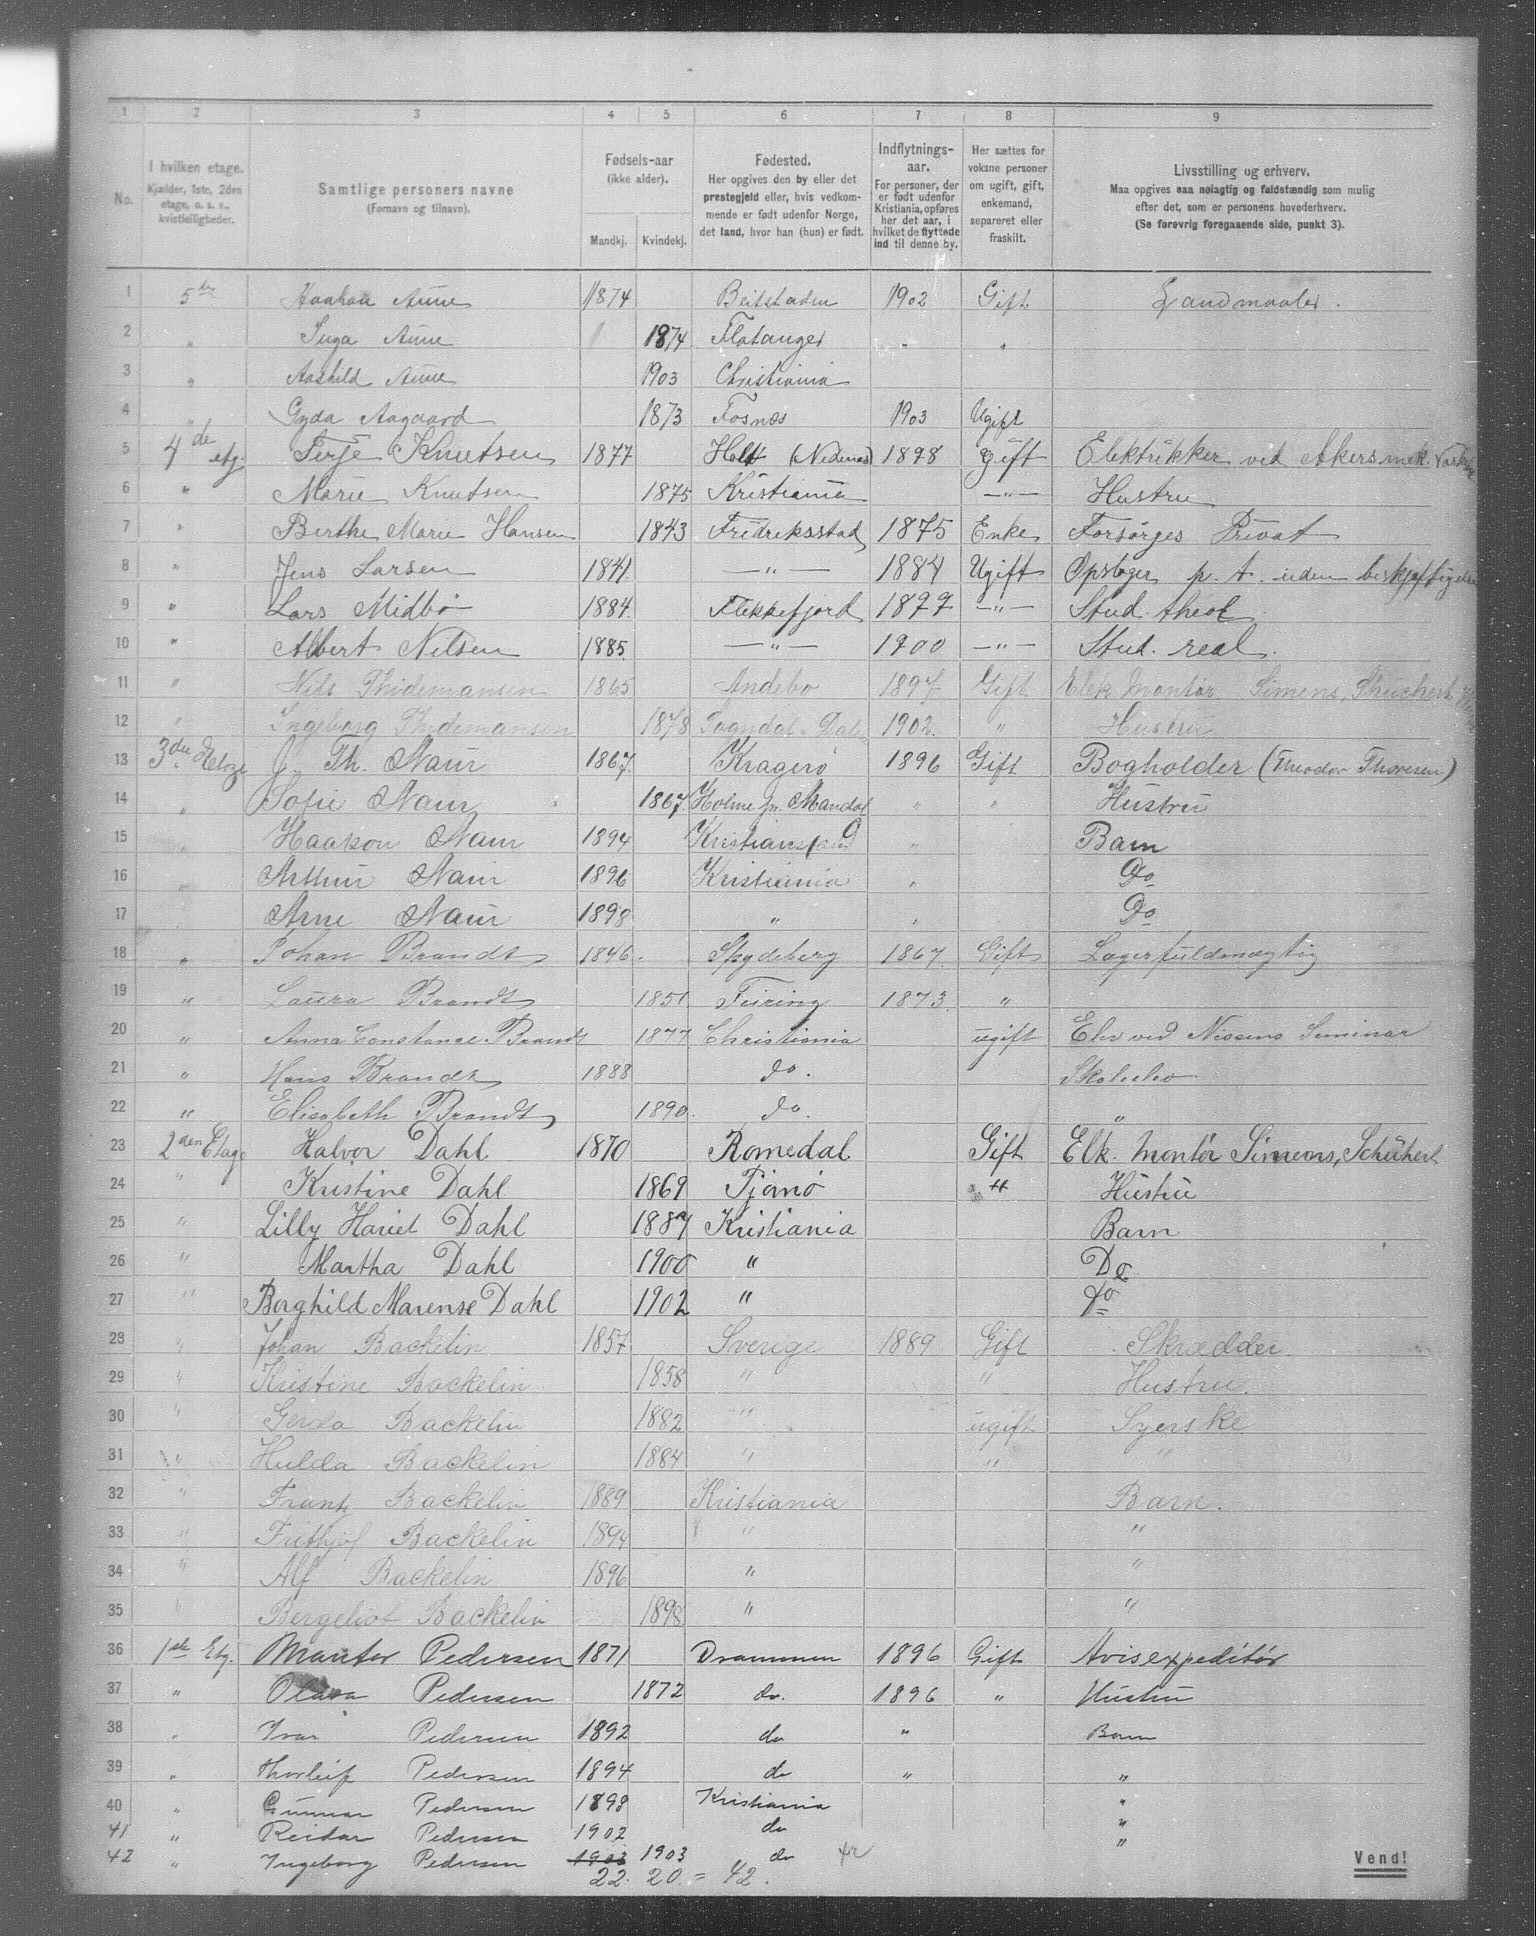 1 2 3 4 5 6 7 8 9
No.
I hvilken etage.
Kjælder, 1ste, 2den etage, o. s. v., kvistleiligheder.
Samtlige personers navne
(Fornavn og tilnavn).
Fødsels-aar
(ikke alder).
Mandkj. Kvindekj.
Fødested.
Her opgives den by eller det prestegjeld eller, hvis vedkommende er født udenfor Norge, det land, hvor han (hun) er født.
Indflytnings-aar.
For personer, der er født udenfor Kristiania, opføres her det aar, i hvilket de flyttede ind til denne by.
Her sættes for voksne personer om ugift, gift, enkemand, separeret eller fraskilt.
Livsstilling og erhverv.
Maa opgives saa nøiagtig og fuldstændig som mulig efter det, som er personens hovederhverv.
(Se forøvrig foregaaende side, punkt 3).
1 5te Haakon Aune 1874 Beitstaden 1902 Gift Landmaaler.
2 " Inga Aune 1874 Flatanger " "
3 " Aashild Aune 1903 Christiania
4 " Gyda Aagaard 1873 Fosnæs 1903 Ugift
5 4de etg. Terje Knutsen 1877 Holt (Nedenæs) 1898 gift Elektrikker ved Akers mek.
6 " Marie Knutsen 1875 Kristiania —"— Hustru
7 " Berthe Marie Hansen 1843 Fredriksstad 1875 Enke Forsørges Privat
8 " Jens Larsen 1841 —"— 1884 Ugift Opsteger p. t. uden beskjæftigelse
9 " Lars Midbø 1884 Flekkefjord 1899 —"— Stud. theol
10 " Albert Nilsen 1885 —"— 1900 —"— Stud. real.
11 " Nils Thidemansen 1865 Andebo 1897 Gift Elek. Montør. Simens, Shuchert
12 " Ingeborg Thidemansen 1878 Sogndal Dalene 1902 " Hustru
13 3die Etage J. Th. Naur 1867 Kragerø 1896 Gift Bogholder (Theodor Thoresen)
14 " Sofie Naur 1867 Holme pr. Mandal " " Hustru
15 " Haakon Naur 1894 Kristianssand " Barn
16 " Arthur Naur 1896 Kristiania " Do
17 " Arne Naur 1898 " " Do
18 " Johan Brandt 1846 Spydeberg 1867 Gift Lagerfuldmægtig
19 " Laura Brandt 1851 Feiring 1873 "
20 " Anna Constance Brandt 1877 Christiania ugift Elev ved Nissens Seminar
21 " Hans Brandt 1888 do. Skoleelev
22 " Elisabeth Brandt 1890 do. "
23 2den Etage Halvor Dahl 1870 Romedal Gift Elk. Montør Simens, Schühert
24 " Kristine Dahl 1869 Tjømø " Hustru
25 " Lilly Hariet Dahl 1887 Kristiania Barn
26 " Martha Dahl 1900 " Do
27 " Borghild Marense Dahl 1902 " Do
28 " Johan Backelin 1857 Sverige 1889 Gift Skrædder.
29 " Kristine Backelin 1858 " " Hustru.
30 " Gerda Backelin 1882 " ugift Syerske
31 " Hulda Backelin 1884 " " "
32 " Frantz Backelin 1889 Kristiania Barn.
33 " Frithjof Backelin 1894 " "
34 " Alf Backelin 1896 " "
35 " Bergeliot Backelin 1898 " "
36 1ste Etg. Mauter Pedersen 1871 Drammen 1896 Gift Avisexpeditør
37 " Olava Pedersen 1872 do. 1896 " Hustru
38 " Ivar Pedersen 1892 do " Barn
39 " Thorleif Pedersen 1894 do " "
40 " Gunnar Pedersen 1898 Kristiania "
41 " Reidar Pedersen 1902 do "
42 " Ingeborg Pedersen 1903 1903 do
22. 20. = 42.
Vend!